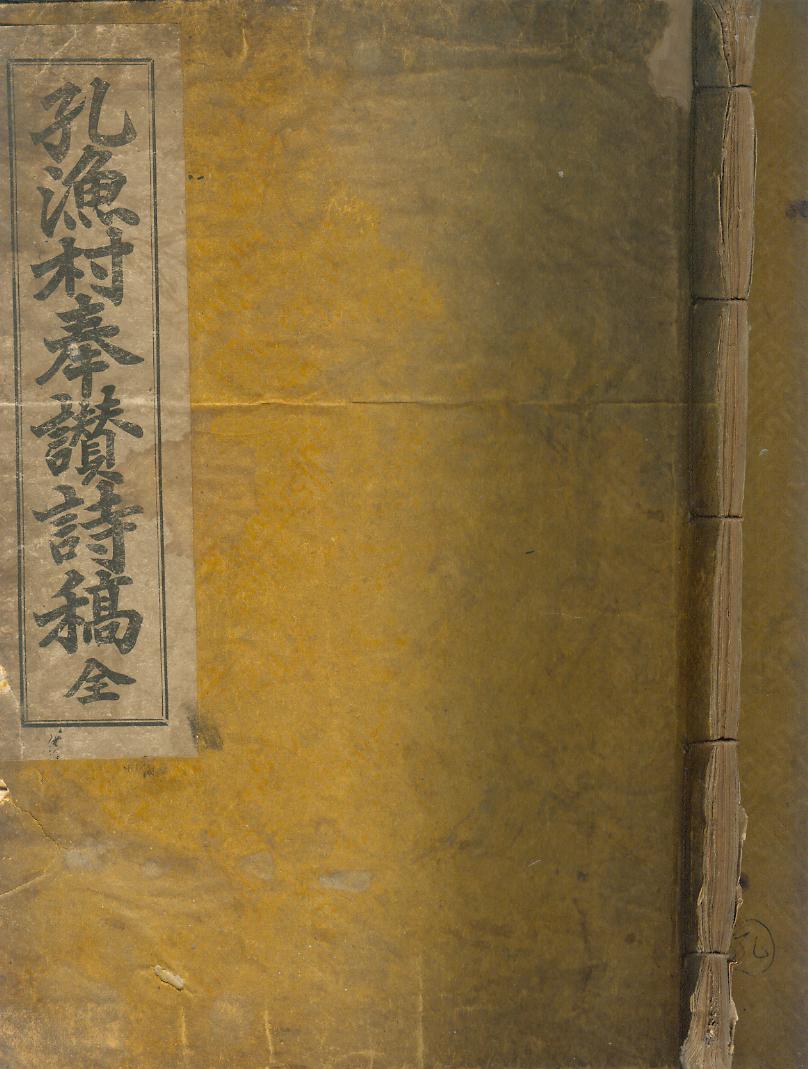 孔漁村奉讚詩稿 全
孔